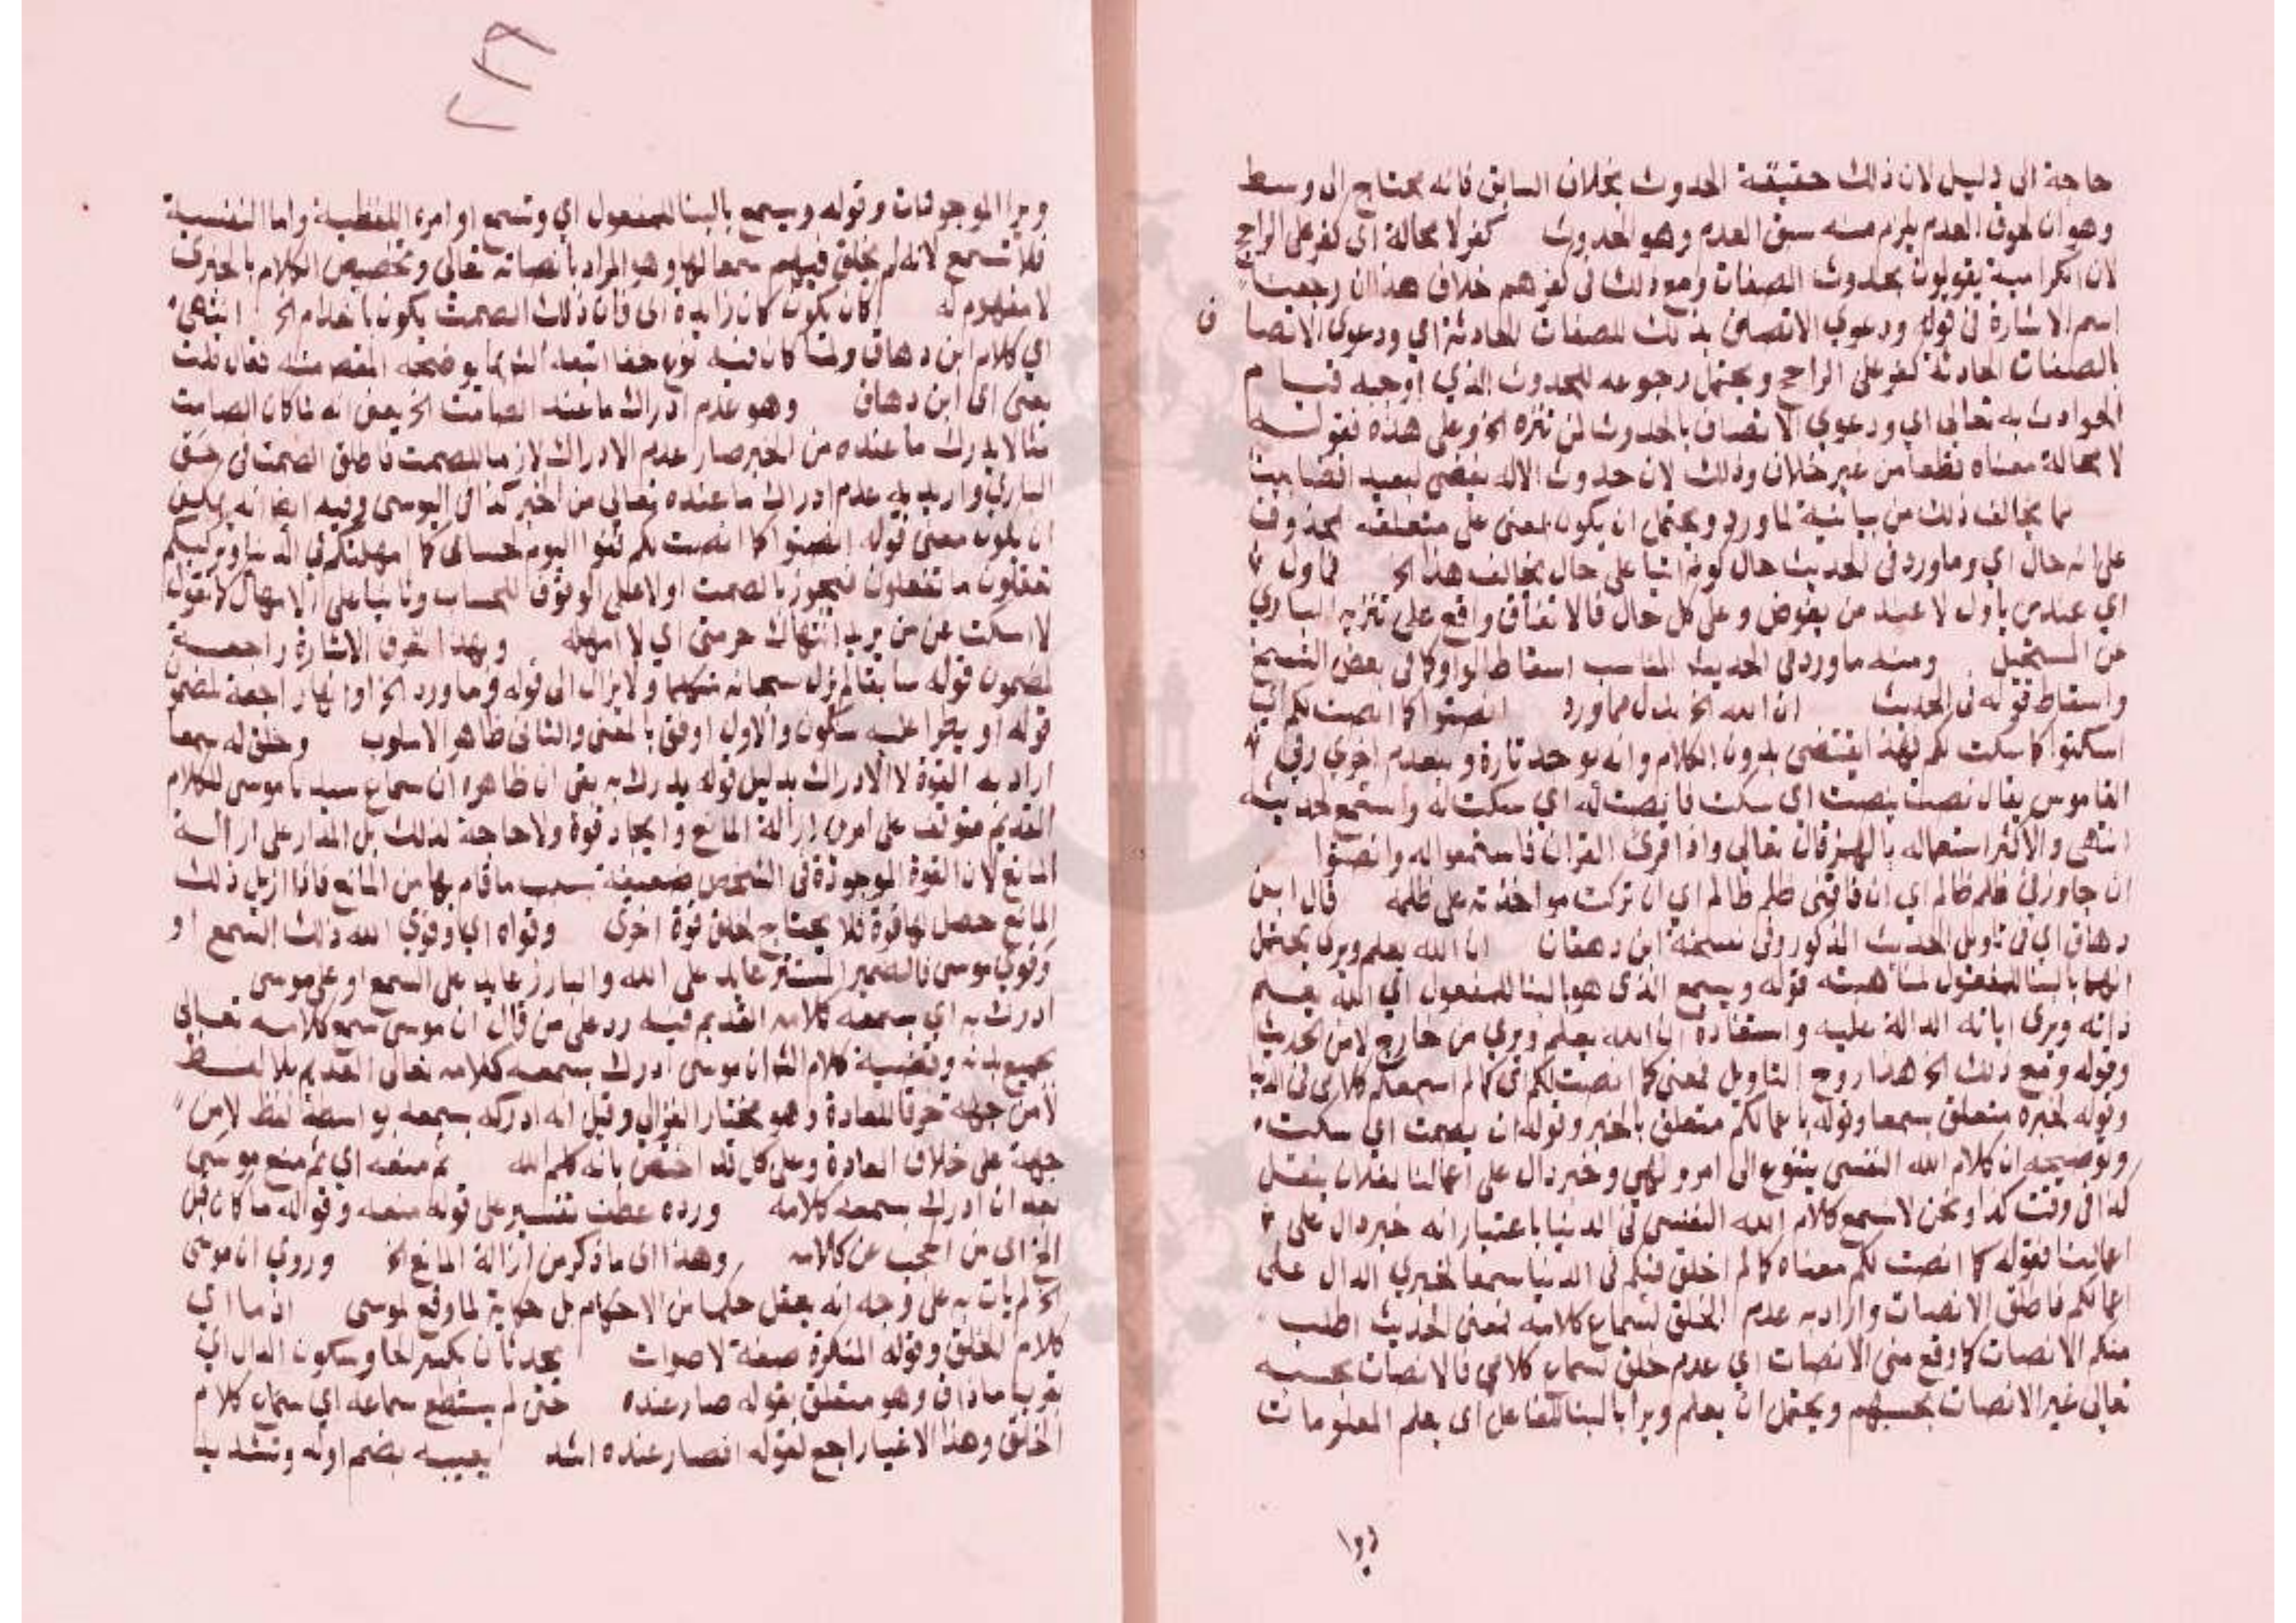 حاجة الى دليل لان ذلك حقيقة الحدوث بخلاف السابق فانه يحتاج الى وسط
وهو ان لحوق العدم يلزم منه سبق العدم وهو الحدوث كفر لا محالة اي كفر على الراجح
لان الكرامية يقولون بحدوث الصفات ومع ذلك في كفرهم خلاف هذا ان رجعنا
اسم الاشارة في قوله ودعوي الاتصاف بذلك للصفات الحادثة اي ودعوي الاتصا ف
بالصفات الحادثة كفر على الراجح ويحتمل رجوعه للحدوث الذي اوجبه قيام
الحوادث به تعالى اي ودعوي الاتصاف بالحدوث لمن تنزه الخ وعلى هذه فقوله
لا محالة معناه قطعا من غير خلاف وذلك لان حدوث الاله
مما يخالف ذلك من بيانية لما ورد ويحتمل ان يكون المعنى على متعلقه محذوف
على انه حال اي وما ورد في الحديث حال كونه اتيا على حال يخالف هذا الخ فماول
اي عند من ياول لا عند من يفوض وعلى كل حال فالاتفاق واقع على تنزيه الباري
عن المستحيل ومنه ما ورد في الحديث المناسب اسقاط الواو كما في بعض النسخ
واسقاط قوله في الحديث ان الله الخ بدل مما ورد انصتوا كما انصت لكم اي
اسكتوا كما سكت لكم فهذا يقتضي بدون الكلام وانه يوجد تارة وينعدم اخري وفي
القاموس يقال نصت ينصت اي سكت فانصت له اي سكت له واستمع لحديثه
انتهى والاكثر استعماله بالهمز قال تعالى واذا قرئ القران فاستمعوا له وانصتوا
ان جاوزني ظلم ظالم اي ان فاتني ظلم ظالم اي ان تركت مواخذته على ظلمه قال ابن
دهاق اي في تاويل الحديث المذكور وفي نسخة ابن دهقان ان الله يعلم ويرى يحتمل
انهما بالبنا للمفعول لمناسبته قوله ويسمع الذي هو بالبنا للمفعول اي الله يعلم
ذاته ويرى اياته الدالة عليه واستفادة ان الله يعلم ويري من خارج لا من الحديث
وقوله وقع ذلك الخ هذا روح التاويل فمعنى كما انصت لكم اي كما لم اسمعكم كلامي في الدنيا
وقوله لخبره متعلق بسمعا وقوله باعمالكم متعلق بالخبر وقوله ان يصمت اي سكت
وتوضيحه ان كلام الله النفسي يتنوع الى امر ونهي وخبر دال على اعمالنا لفلان يفعل
كذا في وقت كذا ونحن لا نسمع كلام الله النفسي في الدنيا باعتبار انه خبر دال على
اعمالنا فقوله كما انصت لكم معناه كما لم اخلق فيكم في الدنيا سمعا لخبري الدال على
اعمالكم فاطلق الانصات واراد به عدم الخلق لسماع كلامه فمعنى الحديث اطلب
منكم الانصات كما وقع مني الانصات اي عدم خلق سماع كلامي فالانصات بحسبه
تعالى غير الانصات بحسبهم ويحتمل ان يعلم ويرا بالبنا للفاعل اى يعلم المعلومات
ويرا
٢٨
ويرا الموجودات وقوله ويسمع بالبنا للمفعول اي وتسمع اوامره اللفظية واما النفسية
فلا تسمع لانه لم يخلق فيهم سمعا لها وهو المراد بانصاته تعالى وتخصيص الكلام بالخبري
لا مفهوم له كان يكون كان زايدة اى فان ذلك الصمت يكون باخدام الخ انتهى
اي كلام ابن دهاق ولما كان فيه نوع خفا اتبعه الش بما يوضحه المقصد منه فقال قلت
يعني اى ابن دهاق وهو عدم ادراك ما عند الصامت الخ يعنى انه لما كان الصامت
منا لا يدرك ما عنده من الخبر صار عدم الادراك لازما للصمت فاطلق الصمت في حق
الباري واريد به عدم ادراك ما عنده تعالى من الخبر كذا في اليوسي وفيه ايضا انه يمكن
ان يكون معنى قوله انصتوا كما انصت لكم قفوا اليوم حسابى كما امهلتكم في الدنيا وتركتكم
تفعلون ما تفعلون فتجوز بالصمت اولا على الوقوف للحساب وثانيا على الامهال كما تقول
لا اسكت عن من يريد انتهاك حرمتى اي لا امهله وبهذا تعرف الاشارة راجعة
لمضمون قوله سابقا لم يزل سبحانه متكلما ولا يزال الى قوله وما ورد الخ او انها راجعة لمضمون
قوله او يطرا عليه سكون والاول اوفق بالمعنى والثانى ظاهر الاسلوب وخلق له سمعا
اراد به القوة لا الادراك بدليل قوله يدرك به بقى ان ظاهره ان سماع سيدنا موسى للكلام
القديم متوقف على امرين ازالة المانع وايجاد قوة ولا حاجة لذلك بل المدار على ازالة
المانع لان القوة الموجودة في الشخص ضعيفة بسبب ما قام بها من المانع فاذا ازيل ذلك
المانع حصل لها قوة فلا يحتاج لخلق قوة اخرى وقواه اي وقوي الله ذلك السمع او
وقوي موسى فالضمير المستتر عايد على الله والبارز عايد على السمع او على موسى
ادرك به اي بسمعه كلامه القديم فيه رد على من قال ان موسى سمع كلامه تعالى
بجميع بدنه وقضية كلام الش ان موسى ادرك بسمعه كلامه تعالى القديم بلا لفظ
لا من جهة خرقا للعادة وهو مختار الغزالي وقيل انه ادركه بسمعه بواسطة لفظ لا من
جهة على خلاف العادة وعلى كل فقد اختص بانه كليم الله ثم منعه اي ثم منع موسى
بعد ان ادرك بسمعه كلامه ورده عطف تفسير على قوله منعه وقواله ما كان قبل
الخ اى من الحجب عن كلامه وهذا اى ما ذكر من ازالة المانع الخ وروي ان موسى
الخ لم يات به على وجه انه يعقل حكما من الاحكام بل حكاية لما وقع لموسى اذ ما اي
كلام الخلق وقوله المنكرة صفة لاصوات بحدثان بكسر الحا وسكون الدال اي
بقرب ما ذاق وهو متعلق بقوله صار عنده حتى لم يستطع سماعه اي سماع كلام
الخلق وهذا الاغيار راجع لقوله فصار عنده اشد يعيبه بضم اوله وتشديد